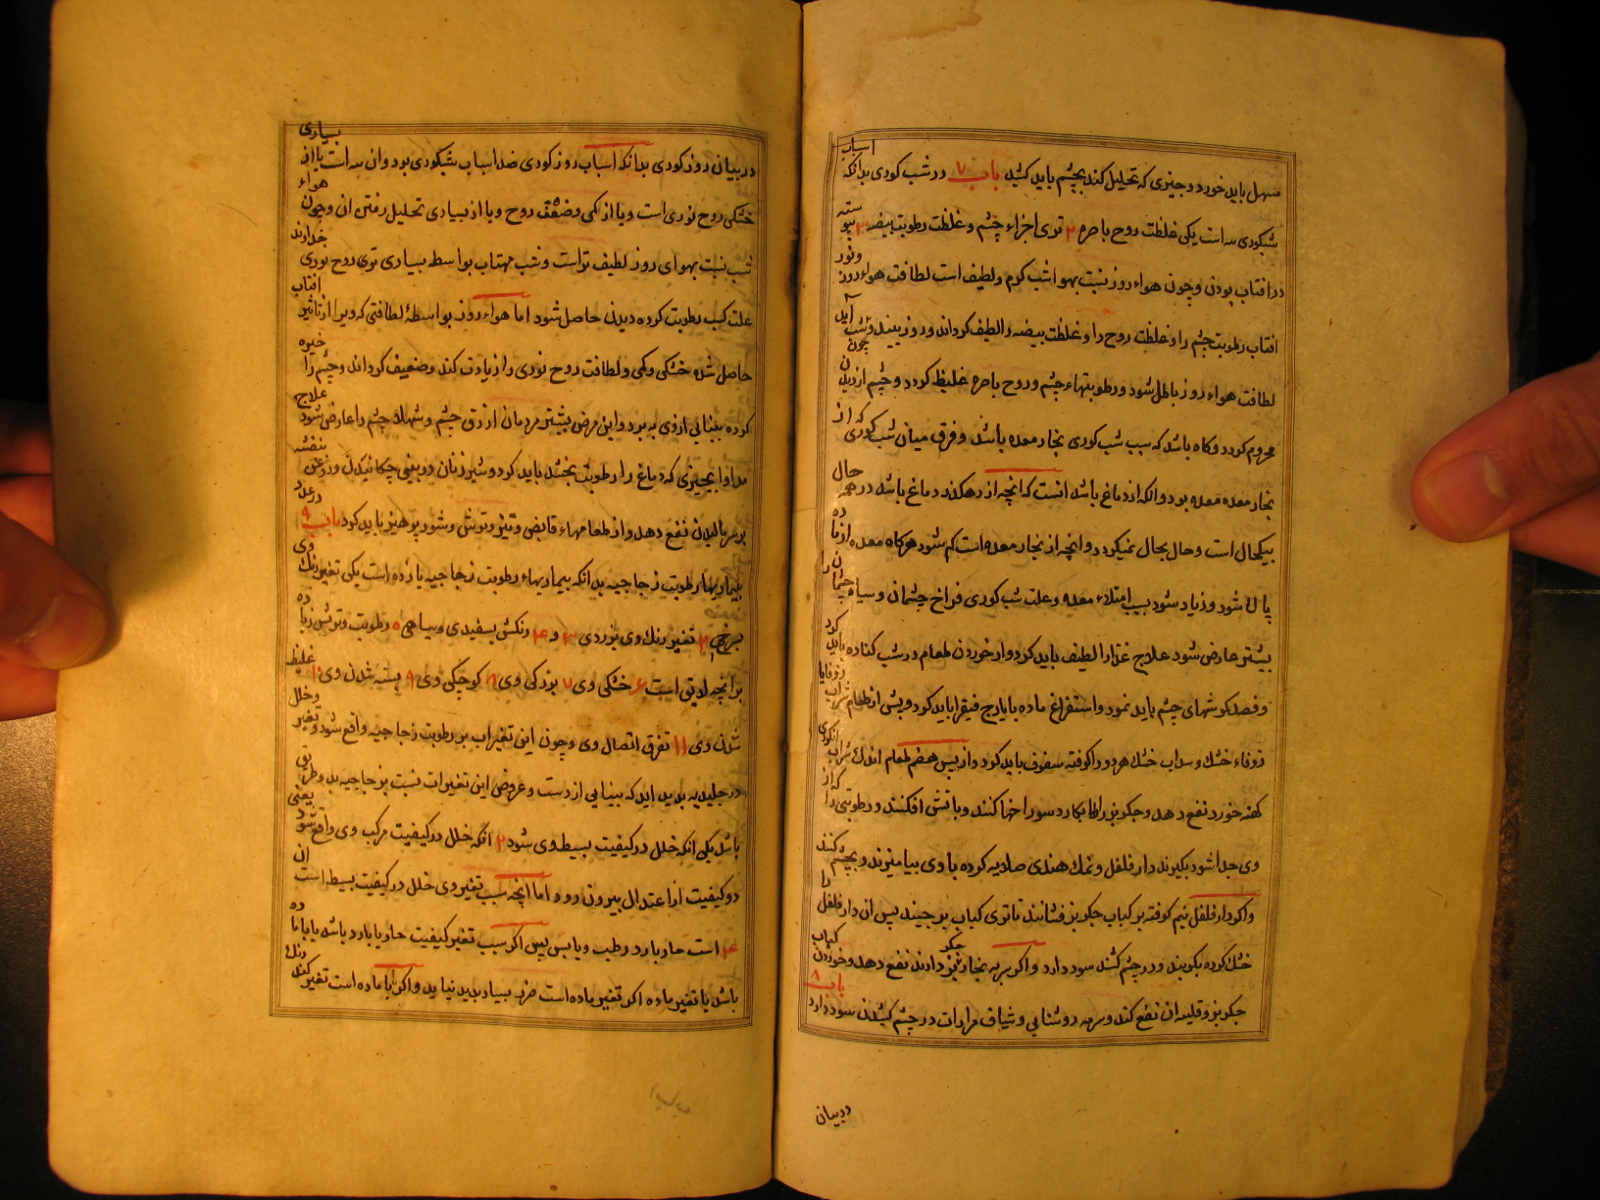 مسهل باید خورد و چیزی که تحلیل کند بچشم باید کشید باب ۷ در شب کوری بدانکه اسباب
شبکوری سه است یکی غلظت روح باصره ۲ توی اجزاء چشم و غلظت رطوبت بیضه ۳ پیوسته
در افتاب بودن و چون هواء روز نسبت بهوا شب کرم و لطیف است لطافت هواء روز و نور
افتاب رطوبت چشم را و غلظت روح را و غلظت بیضه را لطیف کرداند و روز بیند و شب چون
لطافت هواء روز باطل شود و رطوبتهاء چشم و روح باصره غلیظ کردد و چشم از دیدن
محروم کردد و کاه باشد که سبب شب کوری بخار معده باشد و فرق میان شب کوری که از
بخار معده بود و انکه از دماغ باشد انست که انچه از رهکذر دماغ باشد در همه حال
بیکحال است و حال بحال نمیکردد و انچه از بخار معده است کم شود هرکاه معده از ماده
پاك شود و زیاد شود بسبب امتلاء معده و علت شب کوری فراخ چشمان و سیاه چشمان را
بیشتر عارض شود علاج غذا را لطیف باید کرد و از خوردن طعام در شب کناره باید کرد
و فصد کوشهای چشم باید نمود و استفراغ ماده بایارج فیقرا باید کرد و پیش از طعام شراب زوفا یا
زوفاء خشك و سداب خشك هر دو را کوفته سفوف باید کرد و از پس هضم طعام اندك شراب انکوری
کهنه خورد نفع دهد و جکر بز را بکارد سوراخها کنند و باتش افکنند و رطوبتی را که از
وی جدا شود بکیرند دار فلفل و نمك هندی صلایه کرده با وی بیامیزند و بچشم کنند
و اکر دار فلفل نیم کوفته بر کباب جکر بز فشانند تا توی کباب بر چیند پس ان دار فلفل را
خشك کرده بکوبند و در چشم کشند سود دارد و اکر سر به بخار جکر بز دارند نفع دهد و خوردن کباب
جکر بز و قلیه ان نفع کند و سرمه روشنایی و شیاف مرارات در چشم کشیدن سود دارد باب ۸
در بیان
در بیان روز کوری بدانکه اسباب روز کوری ضد اسباب شبکوری بود و ان سه است یا از بسیاری
خشکی روح نوری است و یا از کمی و ضعف روح و یا از بسیاری تحلیل رفتن ان و چون هواء
شب نسبت بهوای روز لطیف تر است و شب مهتاب بواسطه بسیاری توی روح نوری خداوند
علت کسب رطوبت کرده دیدن حاصل شود اما هواء روز بواسطهٔ لطافتی که ویرا از تاثیر افتاب
حاصل شده خشکی و کمی و لطافت روح نوری را زیادت کند و ضعیف کرداند و چشم را خیره
کرده بینایی از وی ببرد و این مرض بیشتر مردمان ازرق چشم و شهلاء چشم را عارض شود علاج
مداوا بچیزی که دماغ را رطوبت بخشد باید کرد و شیر زنان در بینی چکانیدن و روغن بنفشه
بر سر مالیدن نفع دهد و از طعامهاء قابض و تیز و ترش و شور پرهیز باید کرد باب ۹ در عدد
بیماریهاء رطوبت زجاجیه بدانکه بیماریهاء رطوبت زجاجیه یازده است یکی تغیر رنك وی
بسرخی ۲ تغیر رنك وی بزردی ۳ و ۴ رنکش بسفیدی و سیاهی ۵ رطوبت و ترتیش زیاده
بر انچه لایق است ۶ خشکی وی ۷ بزرکی وی ۸ کوچکی وی ۹ بسته شدن وی ۱۰ غلیظ
شدن وی ۱۱ تفرق اتصال وی و چون این تغیرات بر رطوبت زجاجیه واقع شود و تغیر و خلل
در جلیدیه پدید اید که بینایی از دست و عروض این تغیرات نسبت بزجاجیه بدو طریق
باشد یکی انکه خلل در کیفیت بسیط وی شود ۲ انکه خلل در کیفیت مرکب وی واقع شود یعنی
دو کیفیت از اعتدال بیرون رود و اما انچه سبب تغیر وی خلل در کیفیت بسیط است ان
۴ است حار بارد رطب و یابس پس اکر سبب تغیر کیفیت حار یا بارد باشد یا با ماده
باشد یا تغیر ماده اکر تغیر ماده است ضرر بسیار پدید نیاید و اکر با ماده است تغیر رنك کند